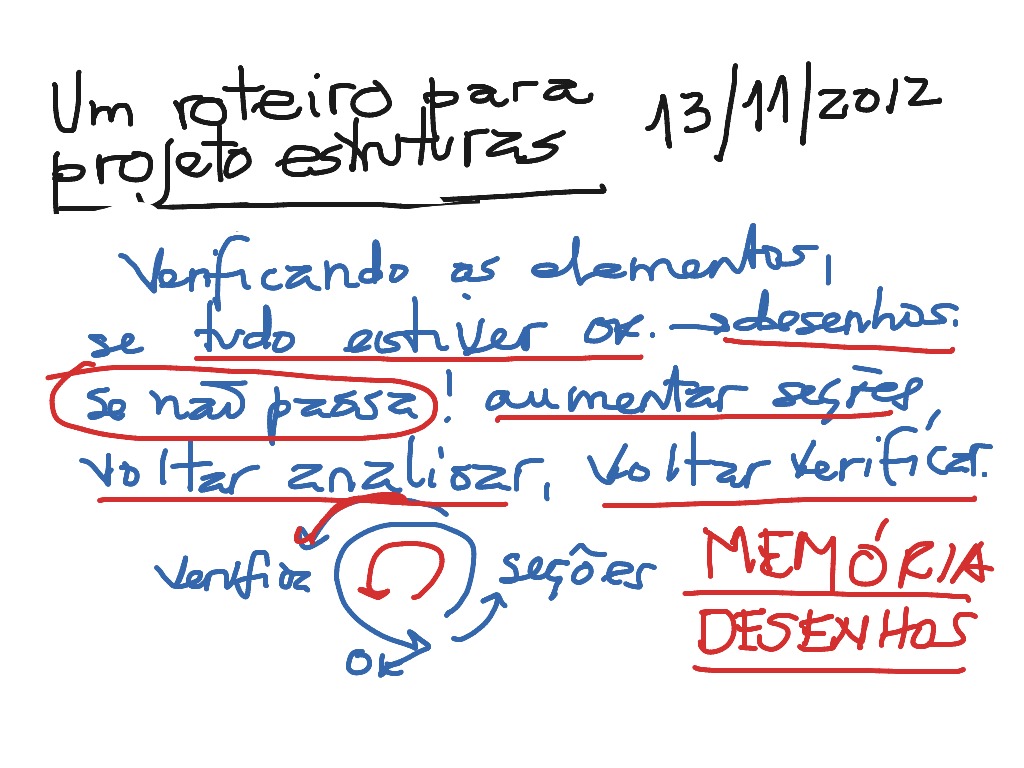 Um roteiro para 13/11/2012
projeto estruturas
Verificando os elementos,
se tudo estiver OK. → desenhos.
se não passa! aumentar seções,
voltar analizar, voltar verificar.
verifica seções MEMÓRIA
OK DESENHOS